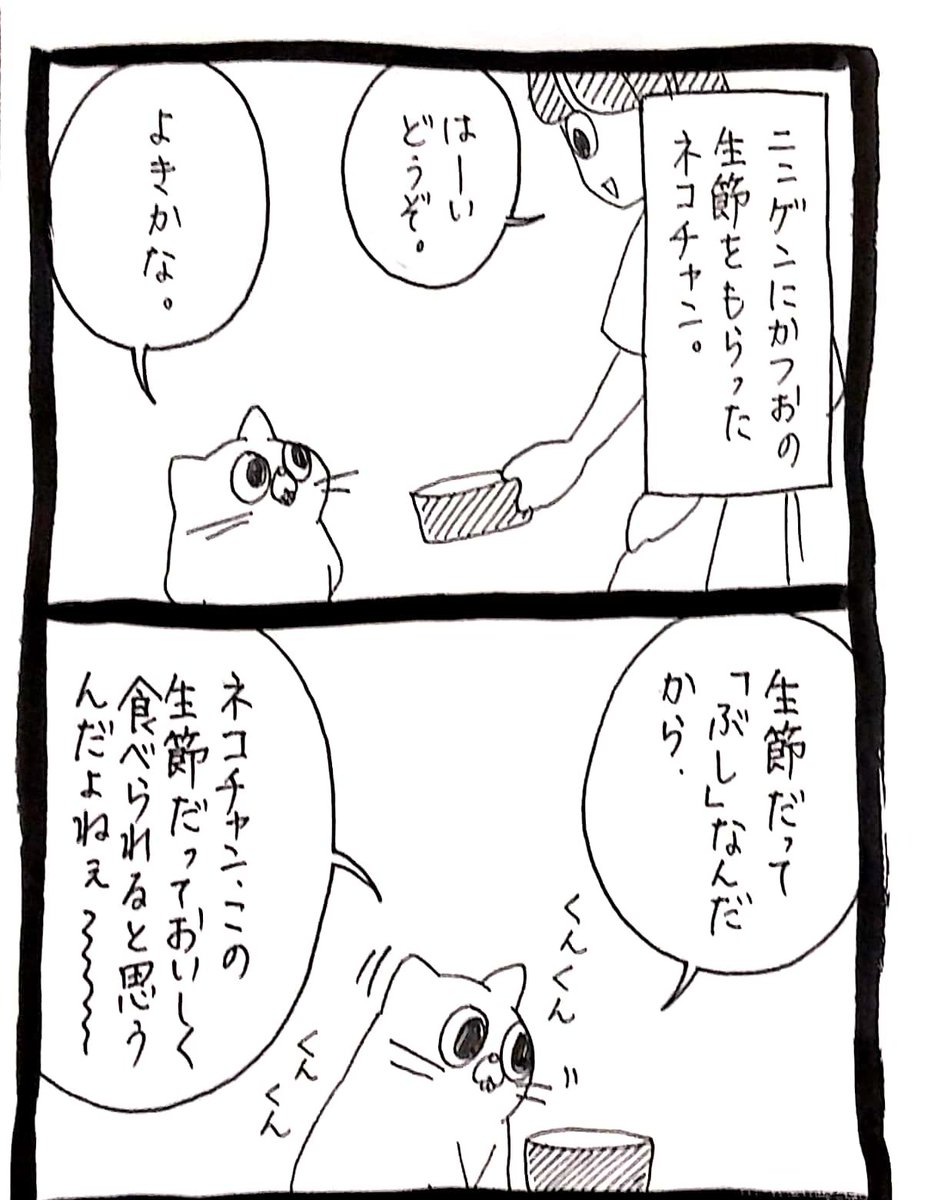 ニンゲンにかつおの
生節をもらった
ネコチャン。
はーい
どうぞ。
よきかな。
生節だって
「ぶし」なんだ
から、
ネコチャン、この
生節だっておいしく
食べられると思う
んだよねぇ〜〜〜〜
くんくん
くんくん